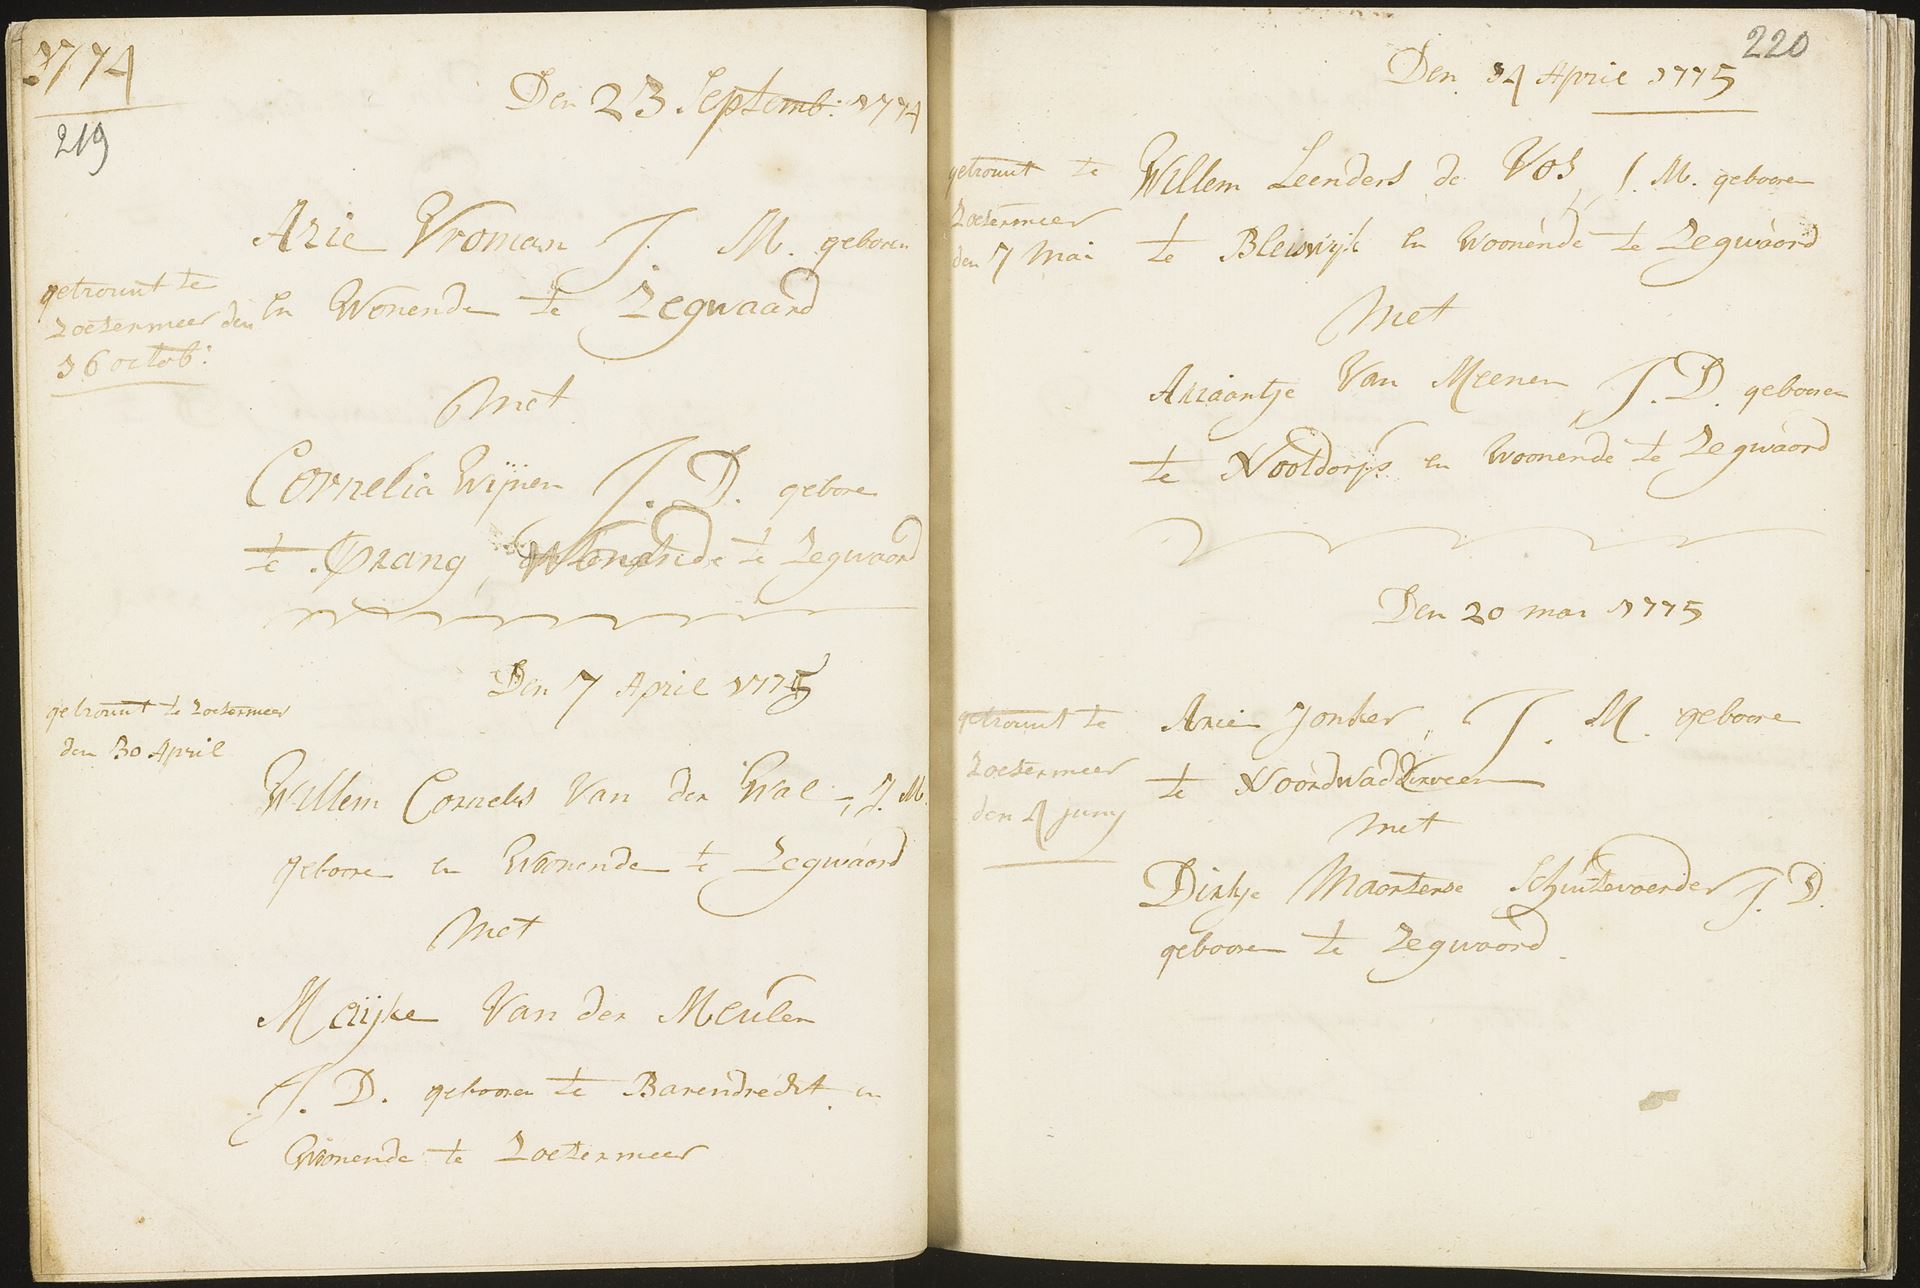 1774
219
Den 23 Septemb: 1774
Arie Vroman J. M. geboren
en Wonende te Zegwaard
getrouwt te
Zoetermeer den
16 octob:
Met
Cornelia Wijnen J. D. gebore
te Wonende te Zegwaard
Den 7 April 1775
getrouwt te Zoetermeer
den 30 April
Willem Cornelis Van der Wal, J. M.
geboore en Wonende te Zegwaard
Met
Maijke Van der Meulen
J. D. geboren te Barendrecht en
Wonende te Zoetermeer
220
Den 14 April 1775
getrouwt te
Zoetermeer
den 7 Mai
Willem Leenders de Vos, J. M. gebooren
te Bleiswijk en Woonende te Zegwaard
Met
Ariaantje Van Meenen, J. D. gebooren
te Nootdorp en Woonende te Zegwaard
Den 20 mai 1775
getrouwt te
Zoetermeer
den 4 juny
Arie Jonker, J. M. geboore
te Noordwaddinxveen
met
Dirkje Maartense Schuitevoerder J. D.
gebooren te Zegwaard